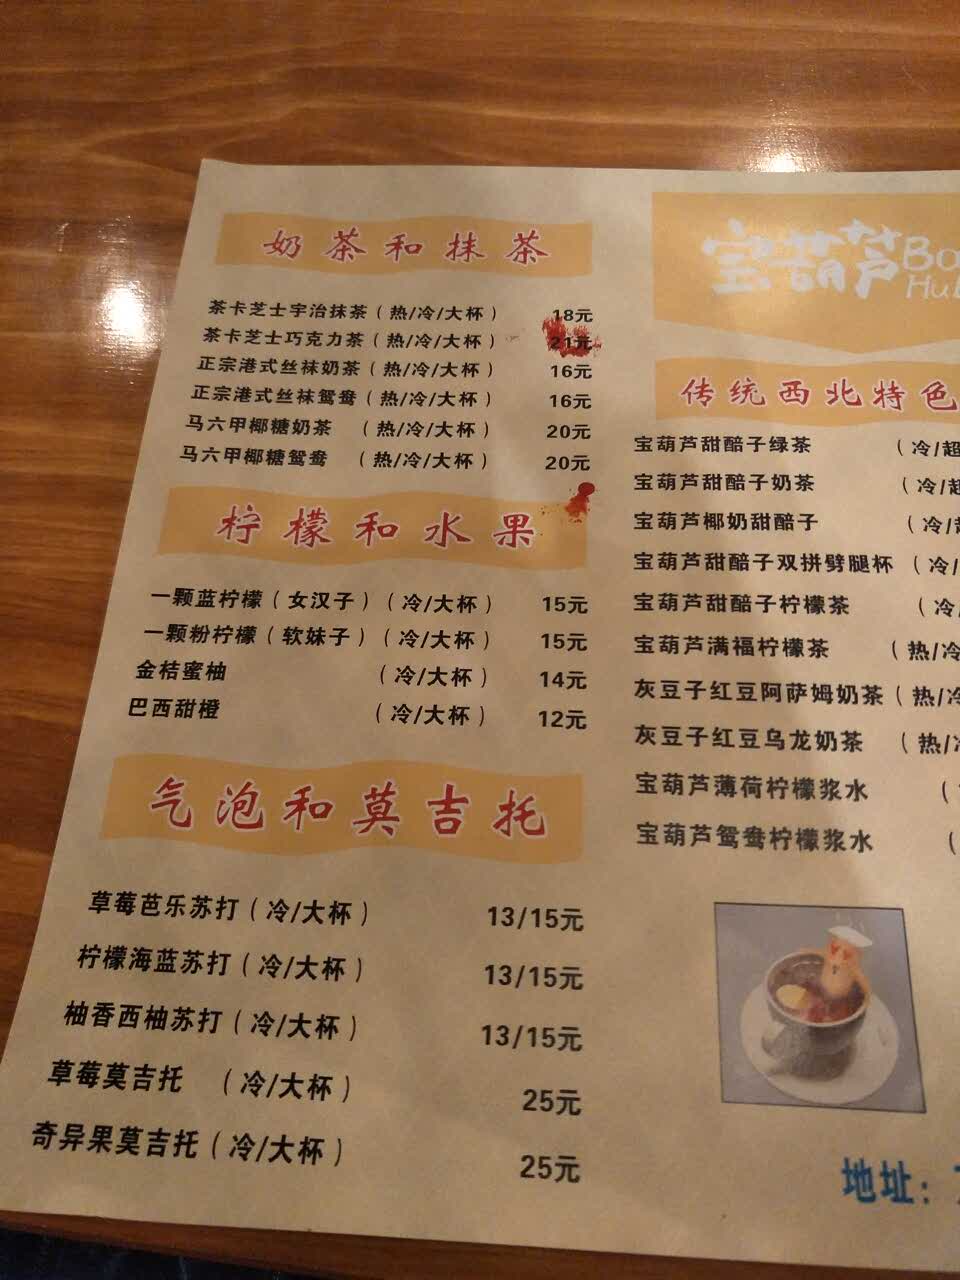 奶茶和抹茶
茶卡芝士宇治抹茶(热/冷/大杯) 18元
茶卡芝士巧克力茶(热/冷/大杯) 21元
正宗港式丝袜奶茶(热/冷/大杯) 16元
正宗港式丝袜鸳鸯(热/冷/大杯) 16元
马六甲椰糖奶茶 (热/冷/大杯) 20元
马六甲椰糖鸳鸯 (热/冷/大杯) 20元
柠檬和水果
一颗蓝柠檬(女汉子)(冷/大杯) 15元
一颗粉柠檬(软妹子)(冷/大杯) 15元
金桔蜜柚 (冷/大杯) 14元
巴西甜橙 (冷/大杯) 12元
气泡和莫吉托
草莓芭乐苏打(冷/大杯) 13/15元
柠檬海蓝苏打(冷/大杯) 13/15元
柚香西柚苏打(冷/大杯) 13/15元
草莓莫吉托 (冷/大杯) 25元
奇异果莫吉托(冷/大杯) 25元
宝葫芦
传统西北特色
宝葫芦甜醅子绿茶 (冷/超
宝葫芦甜醅子奶茶 (冷/超
宝葫芦椰奶甜醅子 (冷/超
宝葫芦甜醅子双拼劈腿杯 (冷/
宝葫芦甜醅子柠檬茶 (冷/
宝葫芦满福柠檬茶 (热/冷
灰豆子红豆阿萨姆奶茶(热/冷
灰豆子红豆乌龙奶茶 (热/冷
宝葫芦薄荷柠檬浆水 (
宝葫芦鸳鸯柠檬浆水 (
地址: